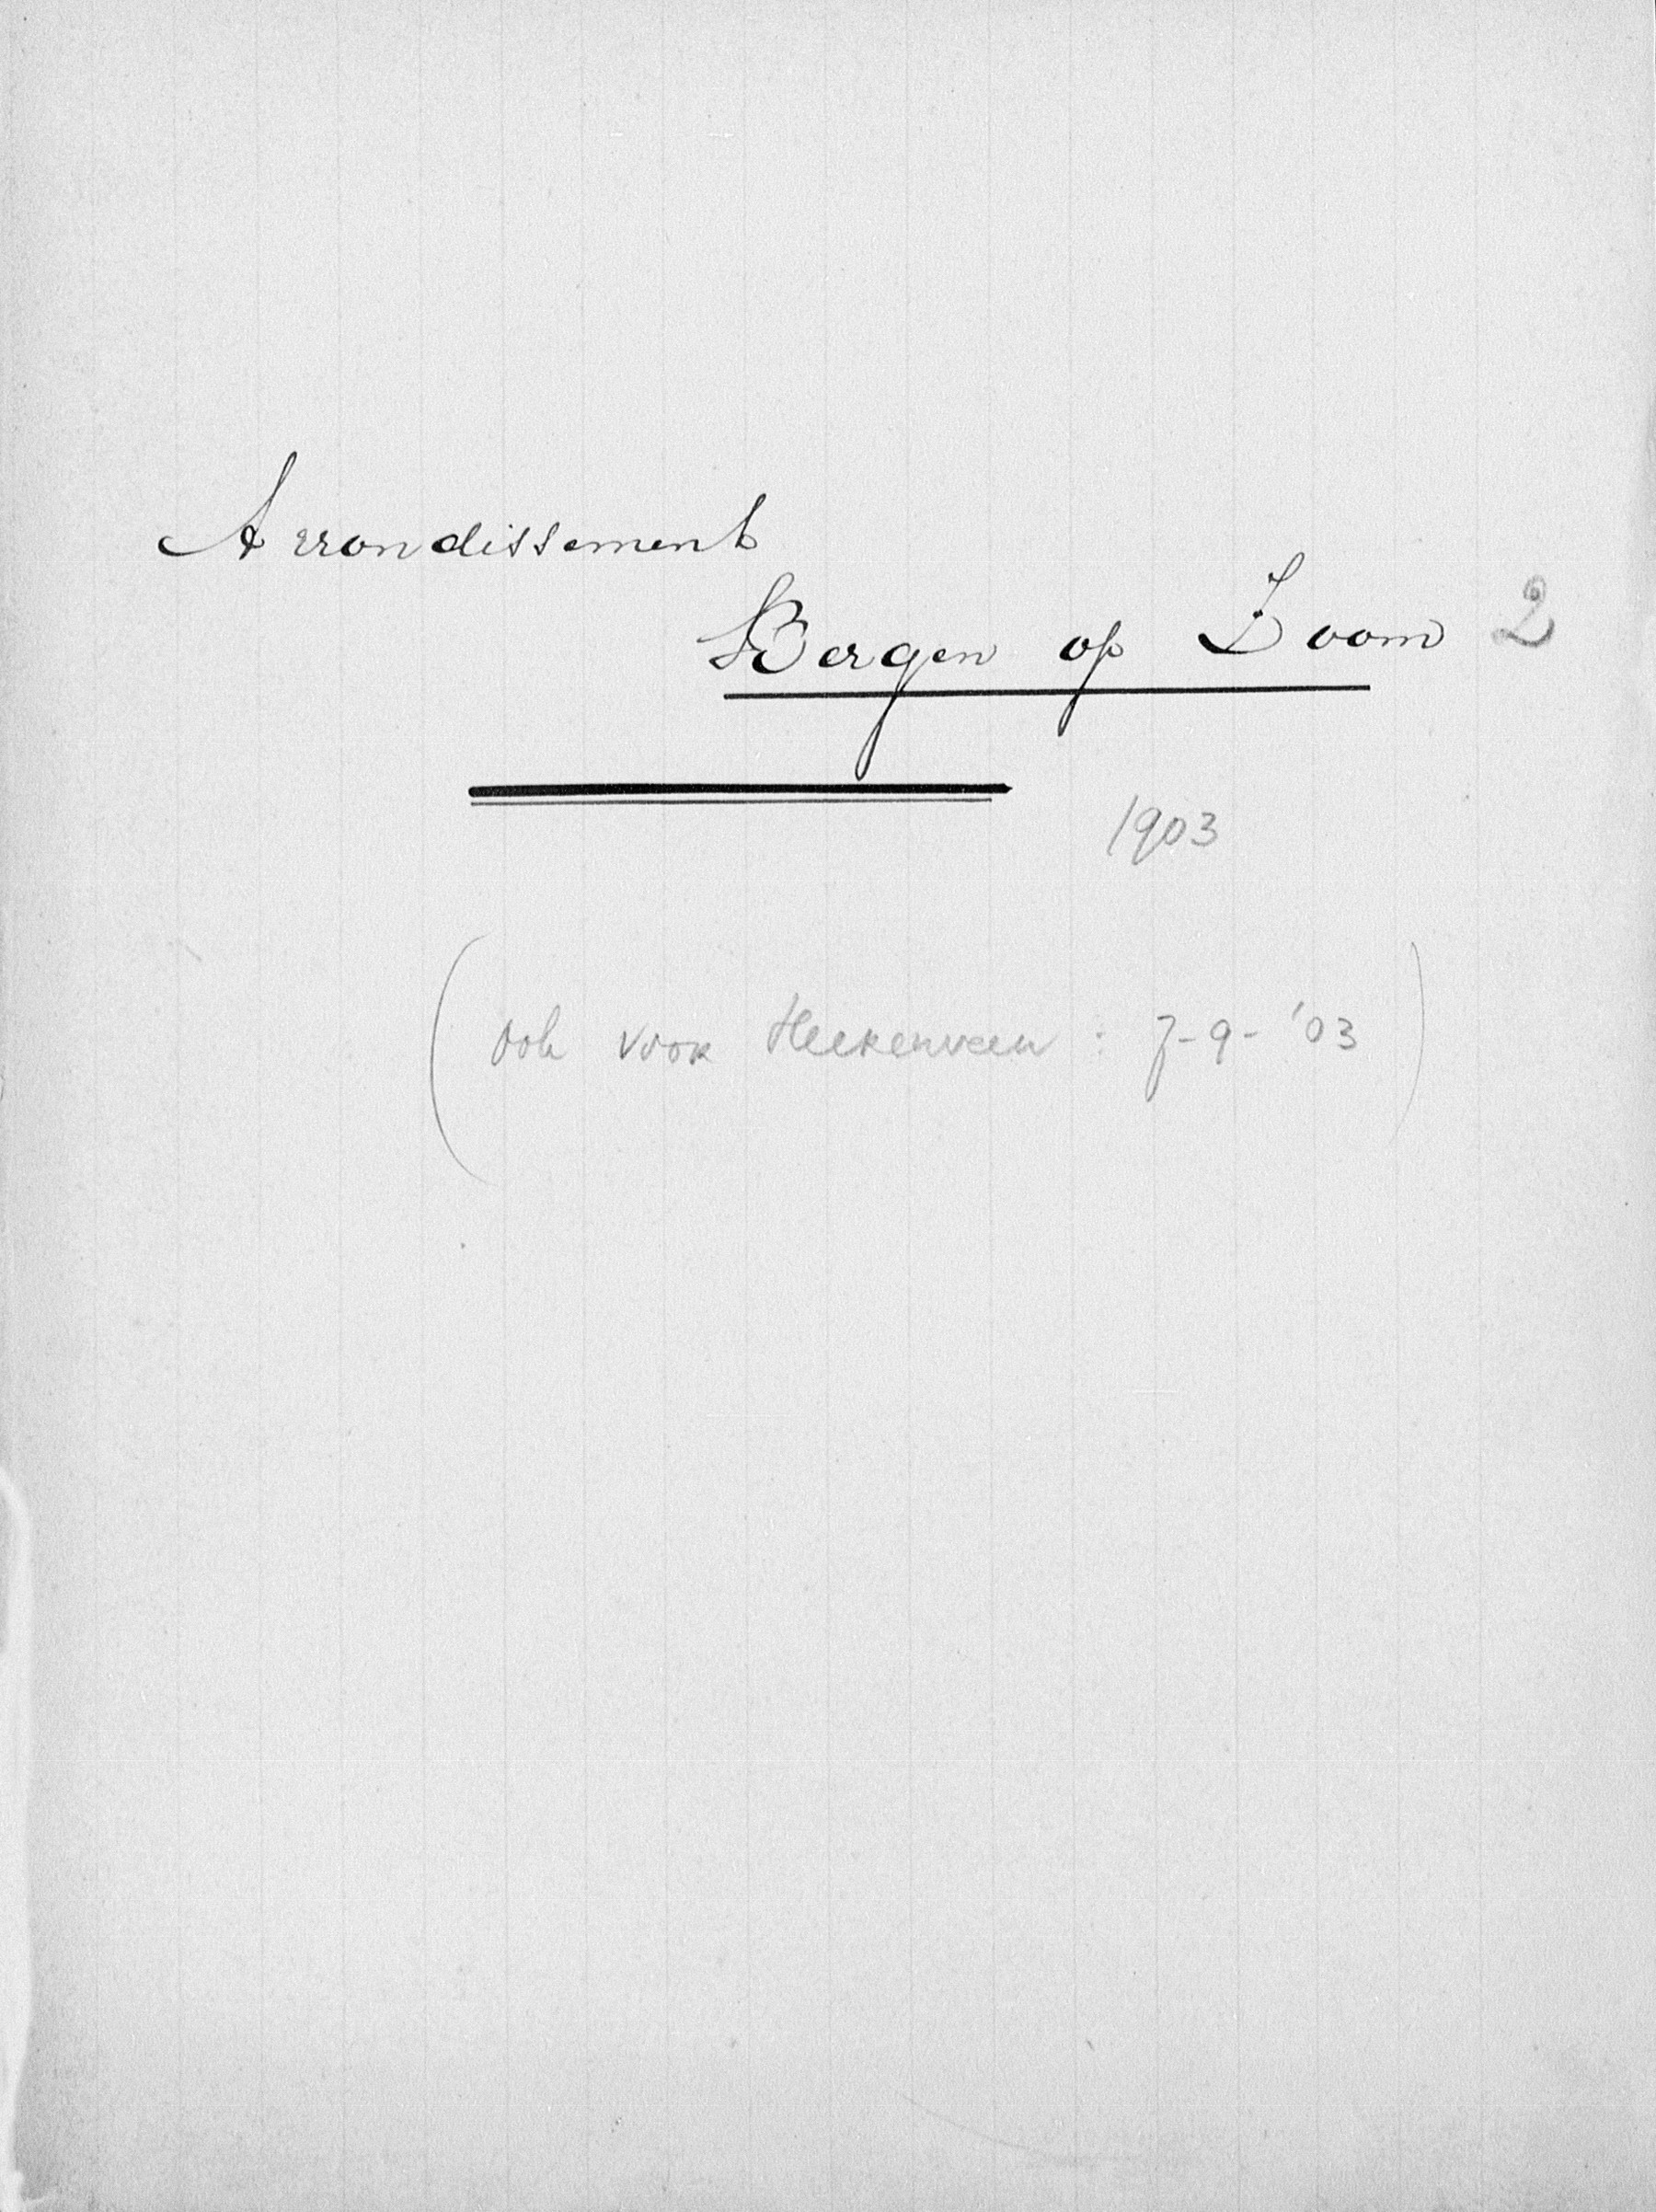 Arrondissement
Bergen op Zoom 2
1903
(ook voor Heerenveen : 7-9-'03)